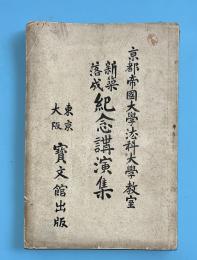 京都帝國大學法科大學教室
新築
落成
紀念講演集
東京
大阪
寶文館出版